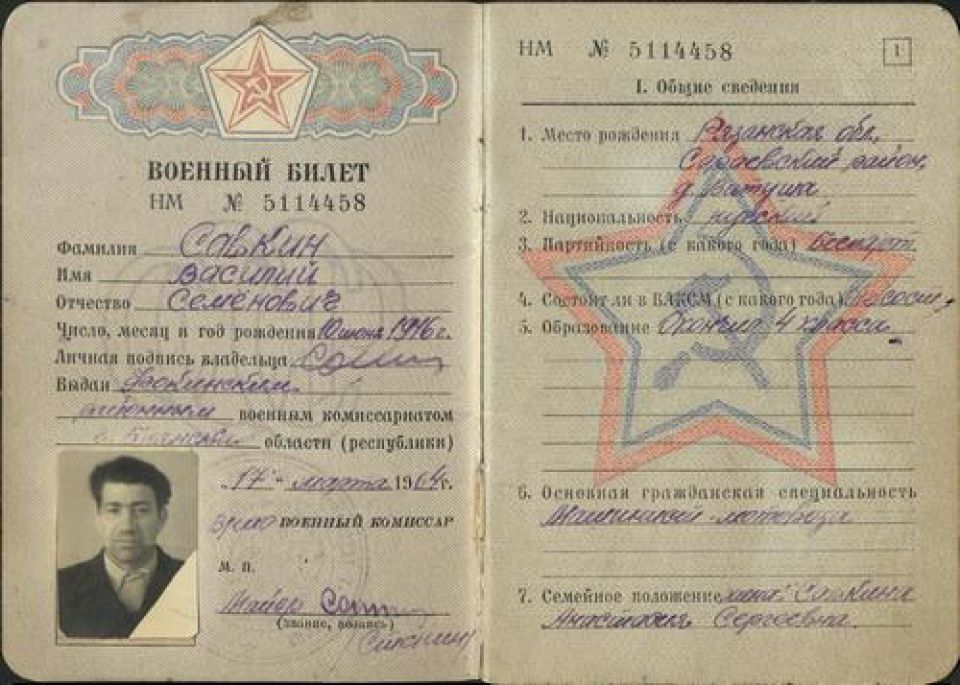 ВОЕННЫЙ БИЛЕТ
НМ № 5114458
Фамилия Савкин
Имя Василий
Отчество Семенович
Число, месяц и год рождения 10 июня 1916 г.
Личная подпись владельца
Выдан
районным военным комиссариатом
области (республики)
"17" марта 1964 г.
ВРИО ВОЕННЫЙ КОМИССАР
М. П.
Майор
(звание, подпись)
НМ № 5114458
1
I. Общие сведения
1. Место рождения Рязанская обл.
Сараевский район,
д.
2. Национальность русский
3. Партийность (с какого года) Беспарт.
4. Состоит ли в ВЛКСМ (с какого года)
5. Образование Окончил 4 класса
6. Основная гражданская специальность
7. Семейное положение жена Савкина
Сергеевна.